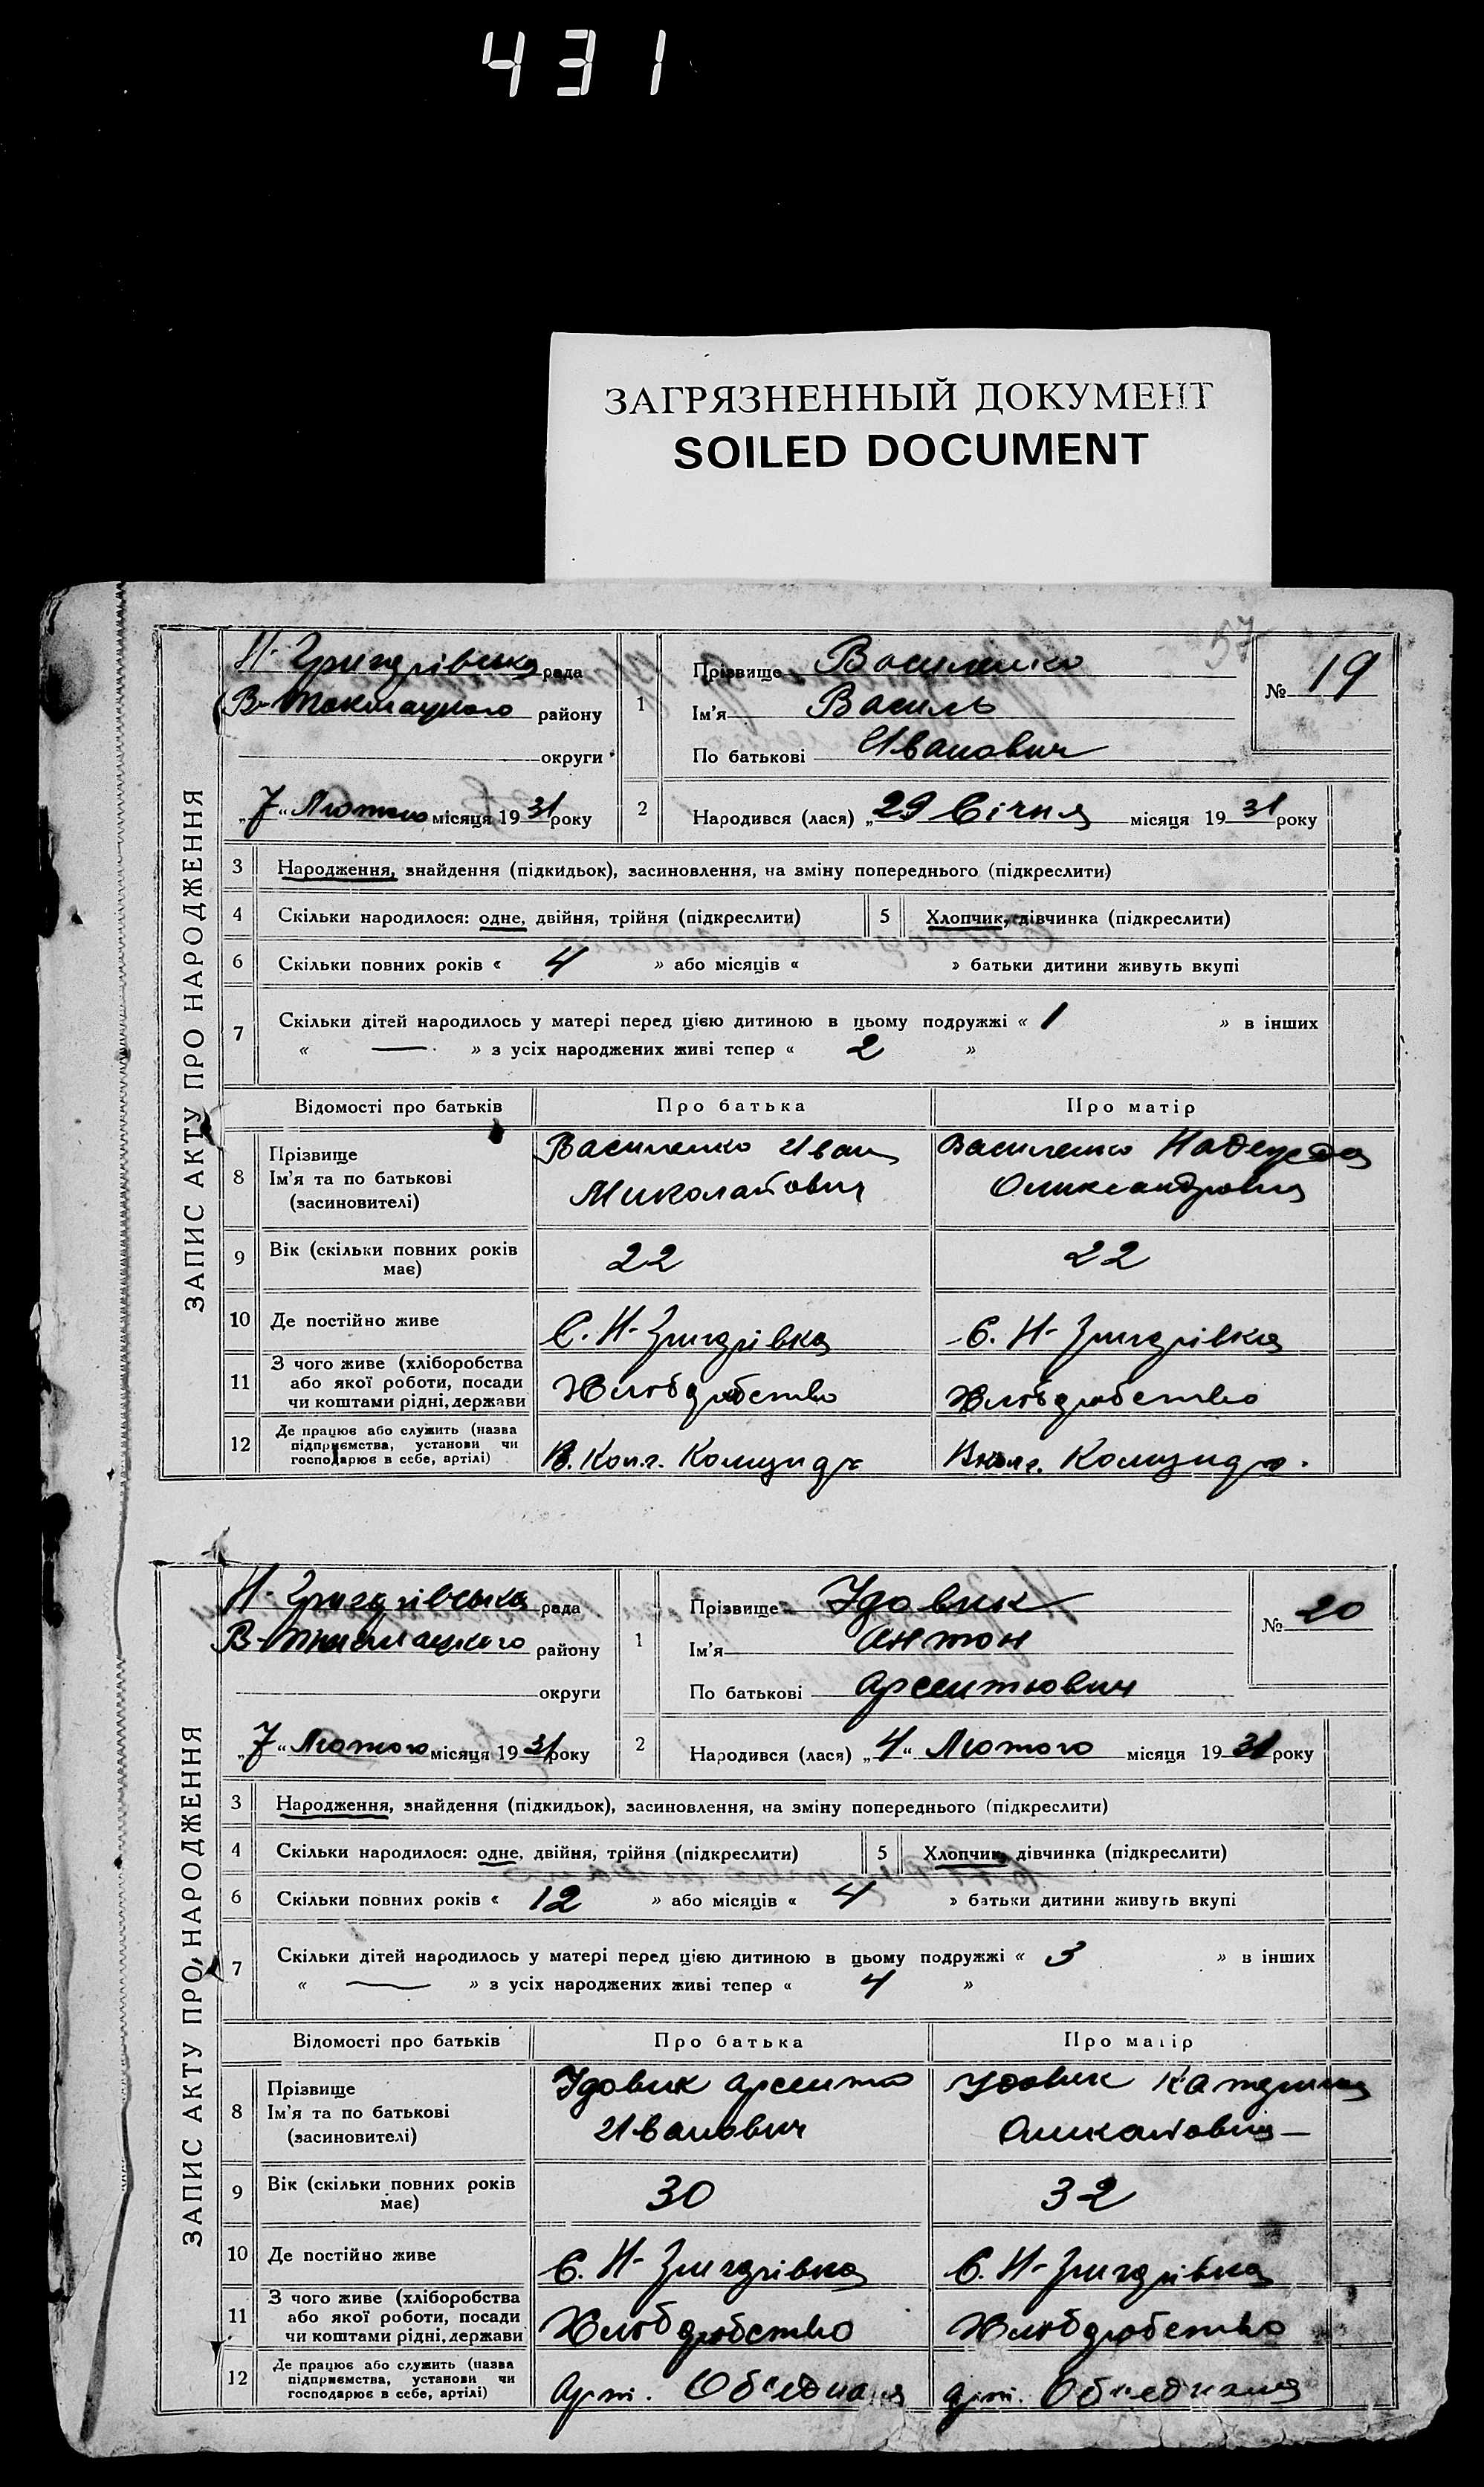 431
ЗАГРЯЗНЕННЫЙ ДОКУМЕНТ
SOILED DOCUMENT
57
ЗАПИС АКТУ ПРО НАРОДЖЕННЯ
Н-Григорівська рада
В-Токмацького району
округи
„7“ Лютого місяця 1931 року
1
Прізвище Василенко
Ім'я Василь
По батькові Иванович
№ 19
2
Народився (лася) „29 Січня місяця 1931 року
3 Народження, знайдення (підкидьок), засиновлення, на зміну попереднього (підкреслити)
4 Скільки народилося: одне, двійня, трійня (підкреслити) 5 Хлопчик, дівчинка (підкреслити)
6 Скільки повних років « 4 » або місяців « » батьки дитини живуть вкупі
7 Скільки дітей народилось у матері перед цією дитиною в цьому подружжі « 1 » в інших
« — » з усіх народжених живі тепер « 2 »
Відомості про батьків Про батька Про матір
8 Прізвище Василенко Иван Василенко Надежда
Ім'я та по батькові Миколайович Олександровна
(засиновителі)
9 Вік (скільки повних років має) 22 22
10 Де постійно живе С. Н-Григорівка С. Н-Григорівка
11 З чого живе (хліборобства
або якої роботи, посади Хлібдробство Хлібдробство
чи коштами рідні, держави
12 Де працює або служить (назва
підприємства, установи чи
господарює в себе, артілі) В. Кол.
ЗАПИС АКТУ ПРО НАРОДЖЕННЯ
Н-Григорівська рада
В-Токмацького району
округи
„7“ Лютого місяця 1931 року
1
Прізвище Удовик
Ім'я Антон
По батькові Арсентьович
№ 20
2
Народився (лася) „4“ Лютого місяця 1931 року
3 Народження, знайдення (підкидьок), засиновлення, на зміну попереднього (підкреслити)
4 Скільки народилося: одне, двійня, трійня (підкреслити) 5 Хлопчик, дівчинка (підкреслити)
6 Скільки повних років « 12 » або місяців « 4 » батьки дитини живуть вкупі
7 Скільки дітей народилось у матері перед цією дитиною в цьому подружжі « 3 » в інших
« — » з усіх народжених живі тепер « 4 »
Відомості про батьків Про батька Про матір
8 Прізвище Удовик Арсентій Удовик Катерина
Ім'я та по батькові Иванович
(засиновителі)
9 Вік (скільки повних років має) 30 32
10 Де постійно живе С. Н-Григорівка С. Н-Григорівка
11 З чого живе (хліборобства
або якої роботи, посади Хлібдробство Хлібдробство
чи коштами рідні, держави
12 Де працює або служить (назва
підприємства, установи чи
господарює в себе, артілі) Арт. Об'єднання Арт. Об'єднання